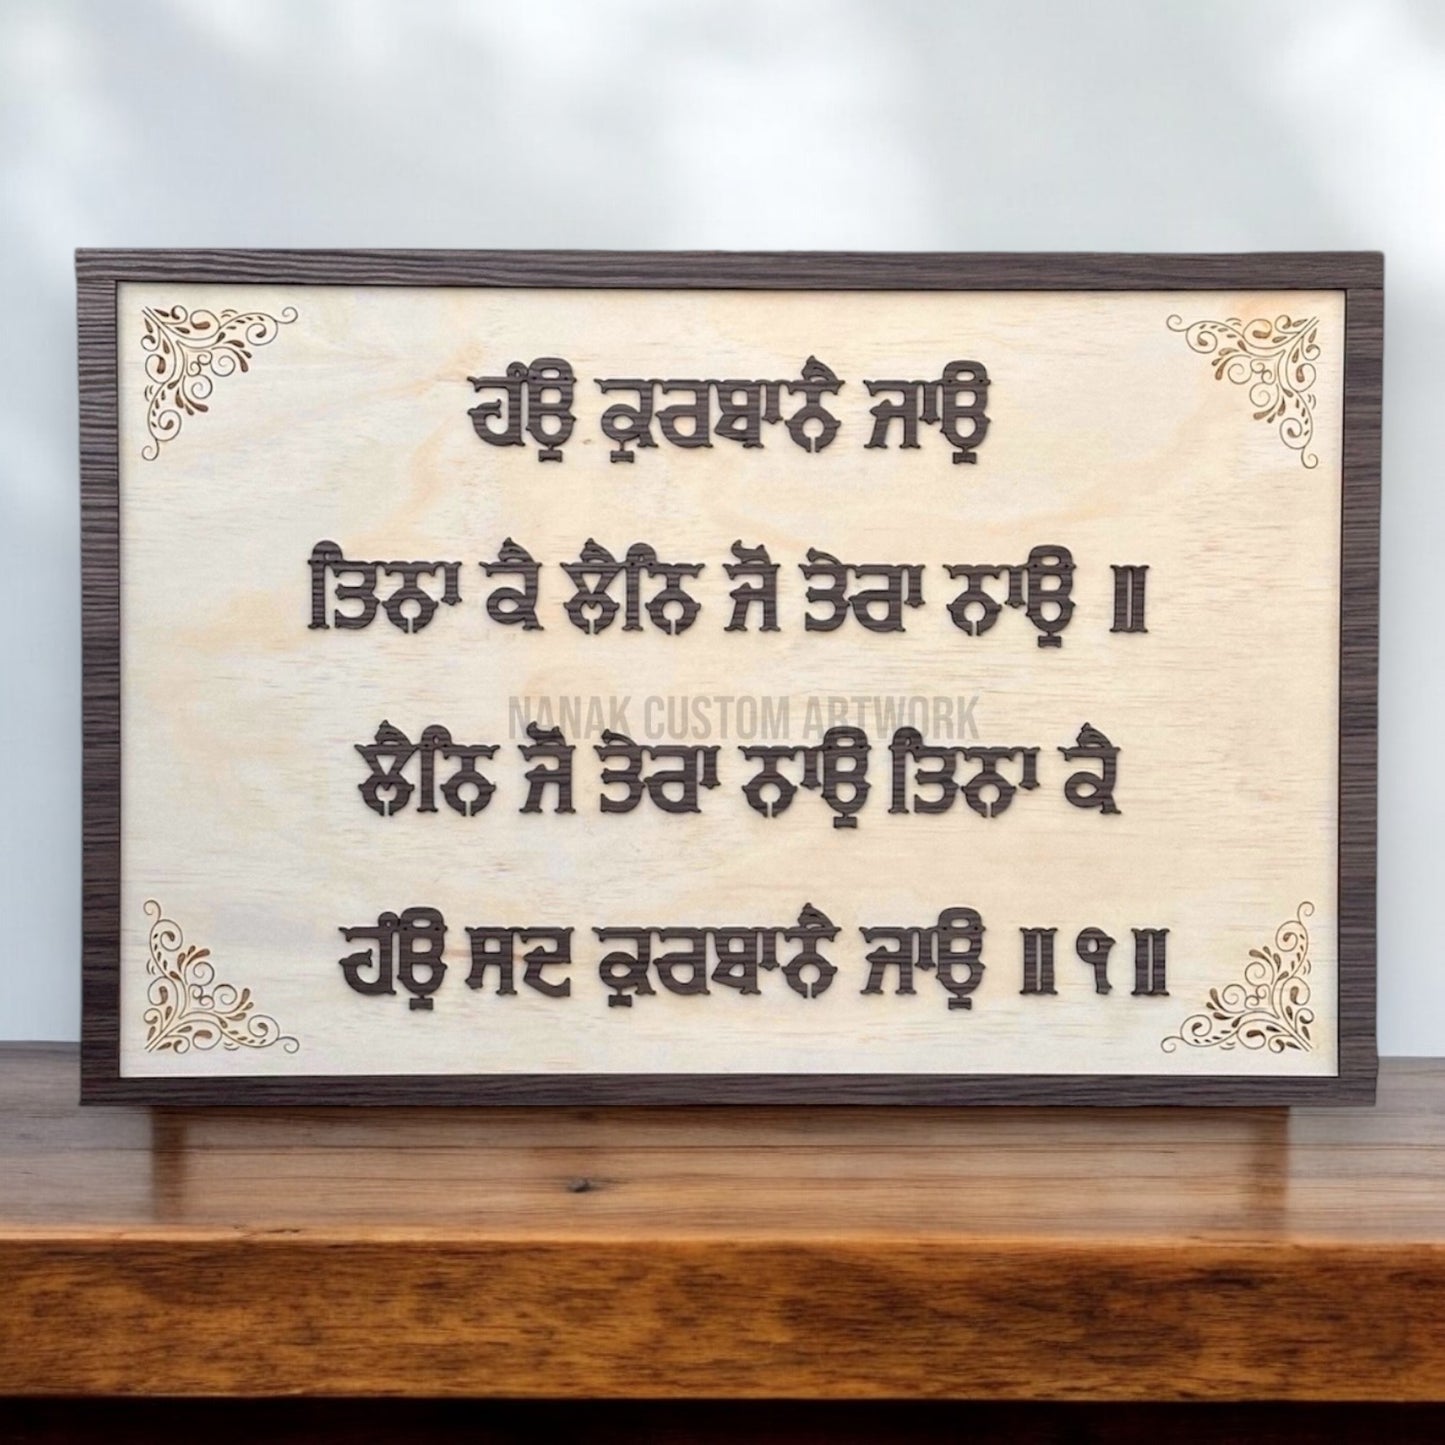 ਹੰਉ ਕੁਰਬਾਨੈ ਜਾਉ
ਤਿਨਾ ਕੈ ਲੈਨਿ ਜੋ ਤੇਰਾ ਨਾਉ ॥
NANAK CUSTOM ARTWORK
ਲੈਨਿ ਜੋ ਤੇਰਾ ਨਾਉ ਤਿਨਾ ਕੈ
ਹੰਉ ਸਦ ਕੁਰਬਾਨੈ ਜਾਉ ॥੧॥